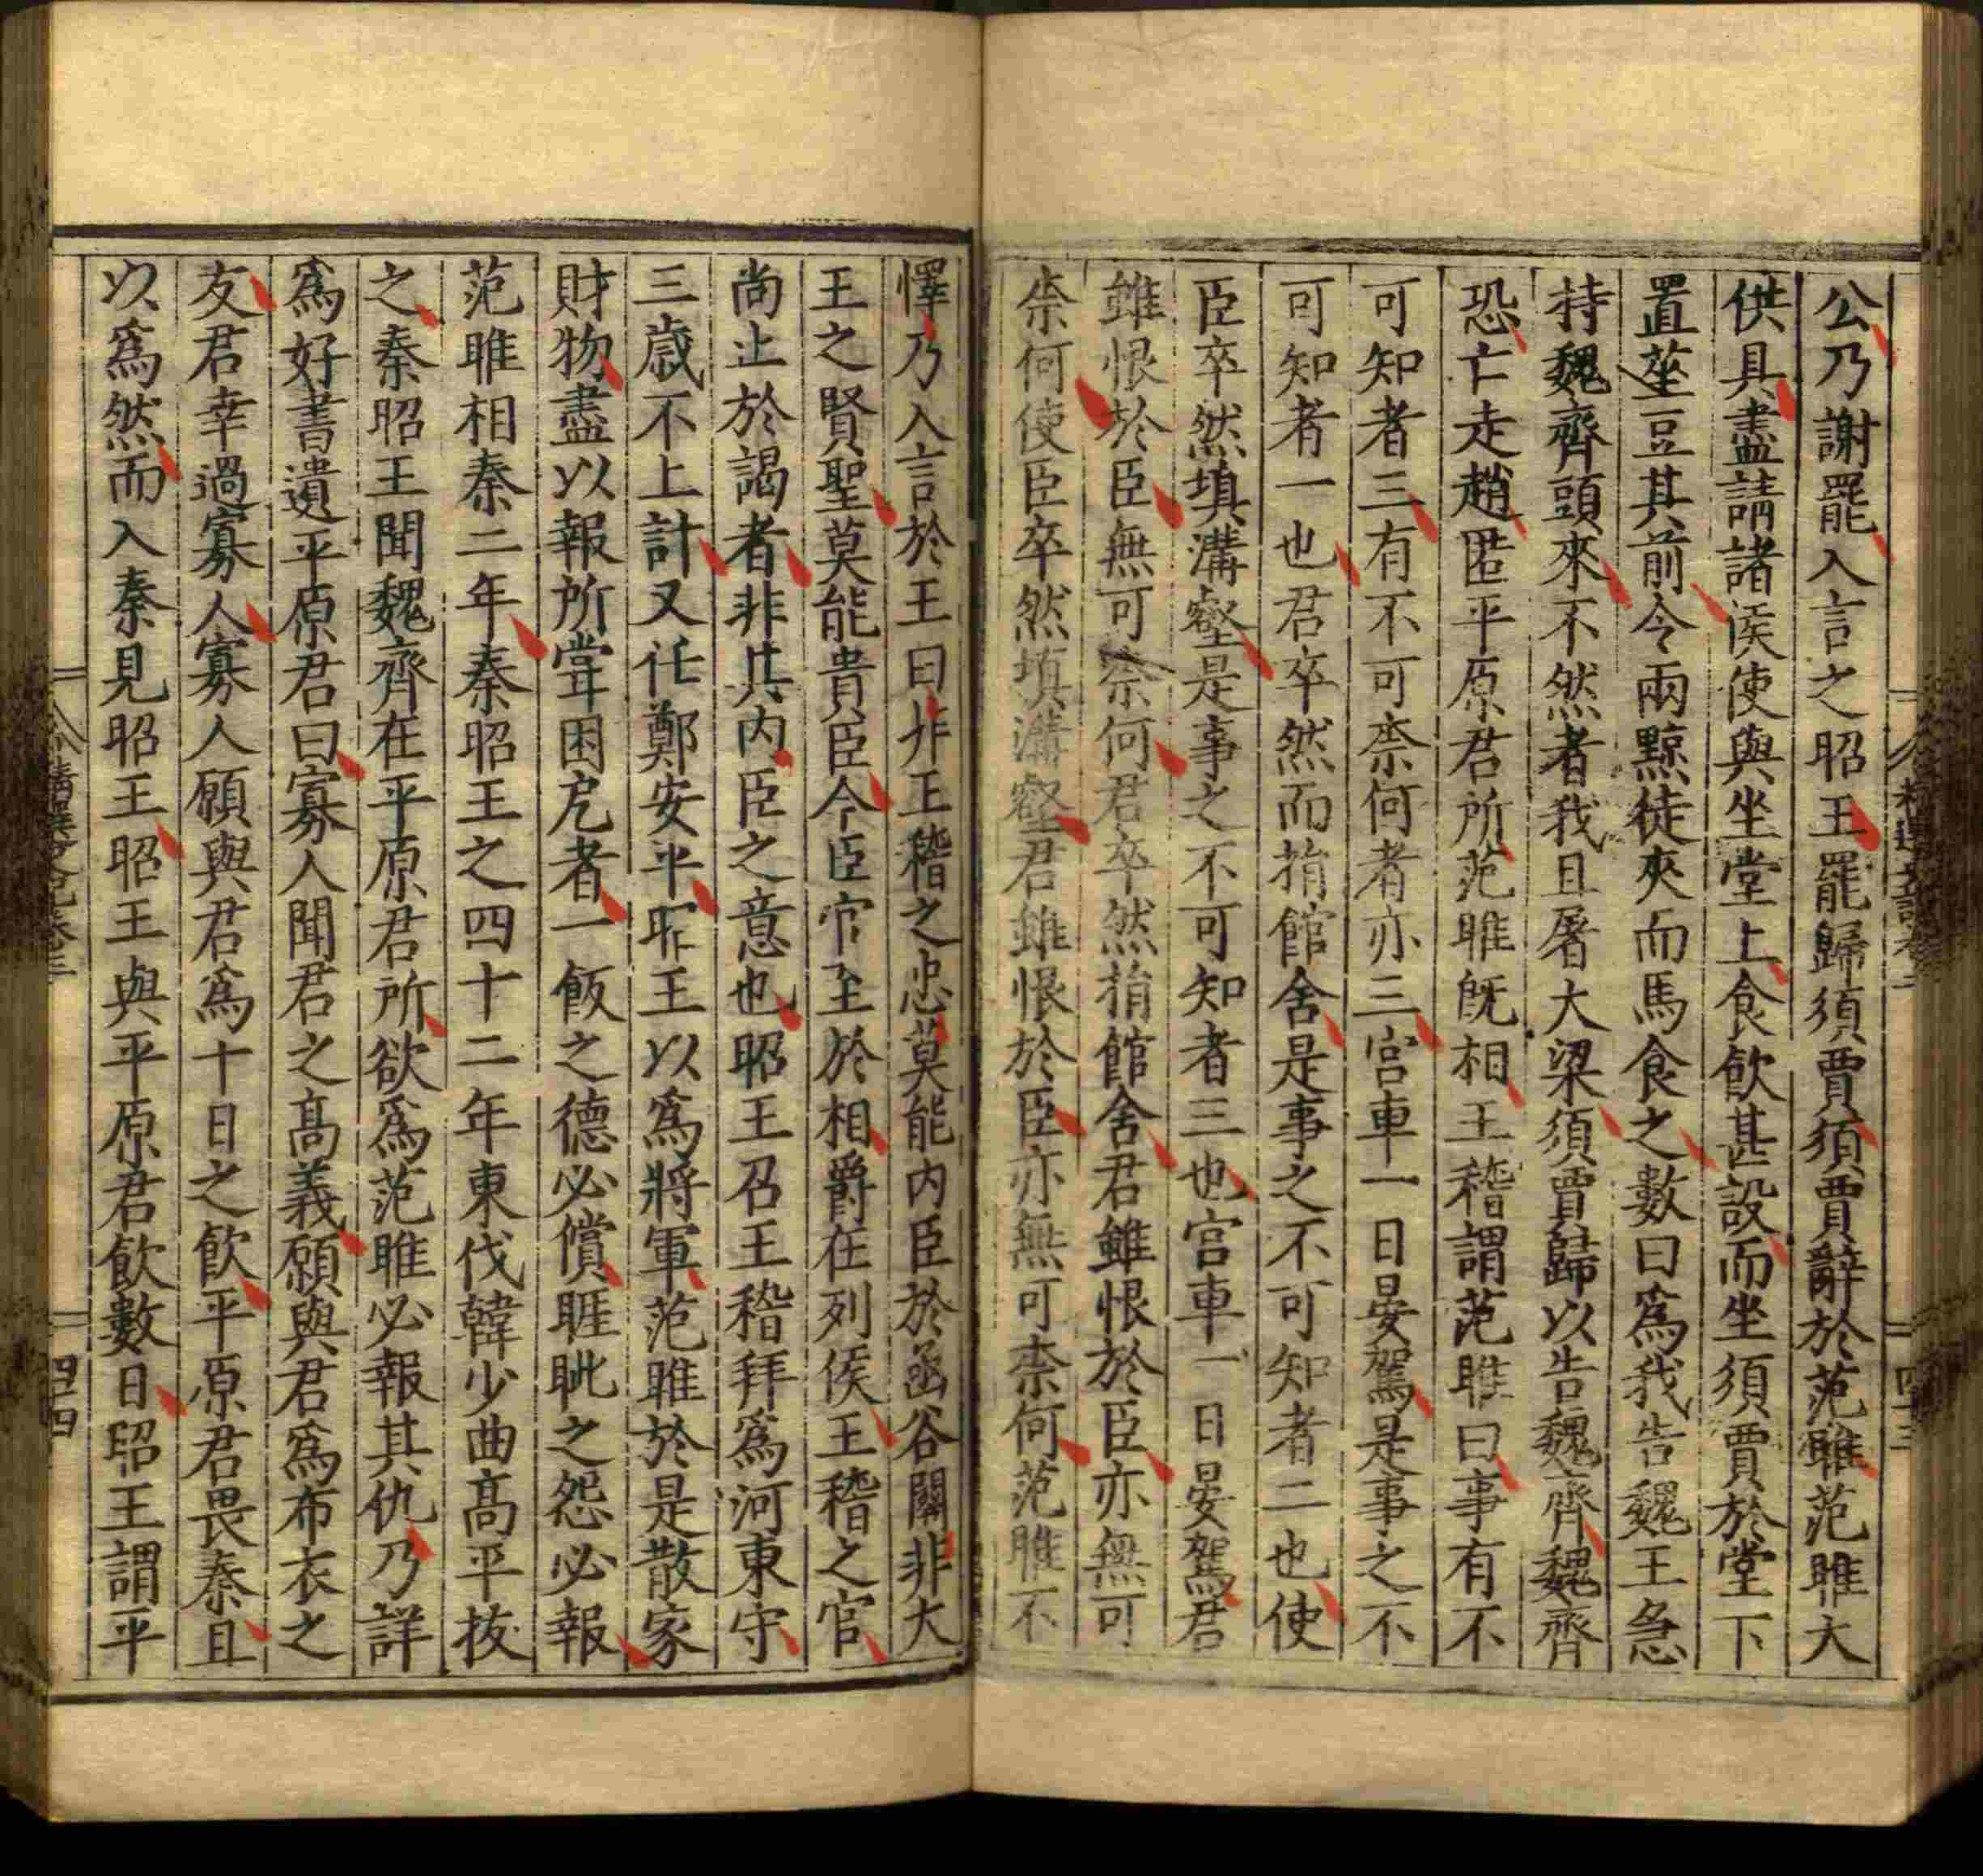 公乃謝罷入言之昭王罷歸須賈須賈辭於范雎范雎大
供具盡請諸侯使與坐堂上食飲甚設而坐須賈於堂下
置莝豆其前令兩黥徒夾而馬食之數曰爲我告魏王急
持魏齊頭來不然者我且屠大梁須賈歸以告魏齊魏齊
恐亡走趙匿平原君所范雎旣相王稽謂范雎曰事有不
可知者三有不可柰何者亦三宮車一日晏駕是事之不
可知者一也君卒然而捐館舍是事之不可知者二也使
臣卒然填溝壑是事之不可知者三也宮車一日晏駕君
雖恨於臣無可柰何君卒然捐館舍君雖恨於臣亦無可
柰何使臣卒然填溝壑君雖恨於臣亦無可柰何范雎不
懌乃入言於王曰非王稽之忠莫能內臣於函谷關非大
王之賢聖莫能貴臣今臣官至於相爵在列侯王稽之官
尚止於謁者非其內臣之意也昭王召王稽拜爲河東守
三歲不上計又任鄭安平昭王以爲將軍范雎於是散家
財物盡以報所嘗困戹者一飯之德必償睚眦之怨必報
范雎相秦二年秦昭王之四十二年東伐韓少曲高平拔
之秦昭王聞魏齊在平原君所欲爲范雎必報其仇乃詳
爲好書遺平原君曰寡人聞君之高義願與君爲布衣之
友君幸過寡人寡人願與君爲十日之飲平原君畏秦且
以爲然而入秦見昭王昭王與平原君飲數日昭王謂平
四四